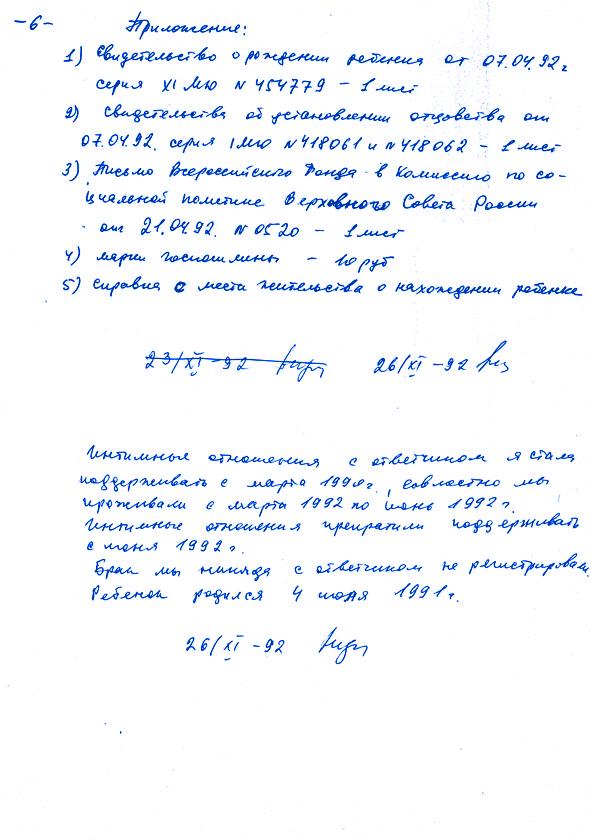 -6- Приложение:
1) Свидетельство о рождении ребенка от 07.04.92г
серия XI МЮ N 454779 - 1 лист
2) Свидетельства об установлении отцовства от
07.04.92. серия I МЮ N 418061 и N 418062 - 1 лист
3) Письмо Всероссийского Фонда в Комиссию по со-
циальной политике Верховного Совета России
от 21.04.92. N 0520 - 1 лист
4) марки госпошлины - 10 руб
5) справка с места жительства о нахождении ребенка
23/XI-92 26/XI-92
Интимные отношения с ответчиком я стала
поддерживать с марта 1990г., совместно мы
проживали с марта 1992 по июнь 1992г.
Интимные отношения прекратили поддерживать
с июня 1992г.
Брак мы никогда с ответчиком не регистрировали.
Ребенок родился 4 июня 1991г.
26/XI-92